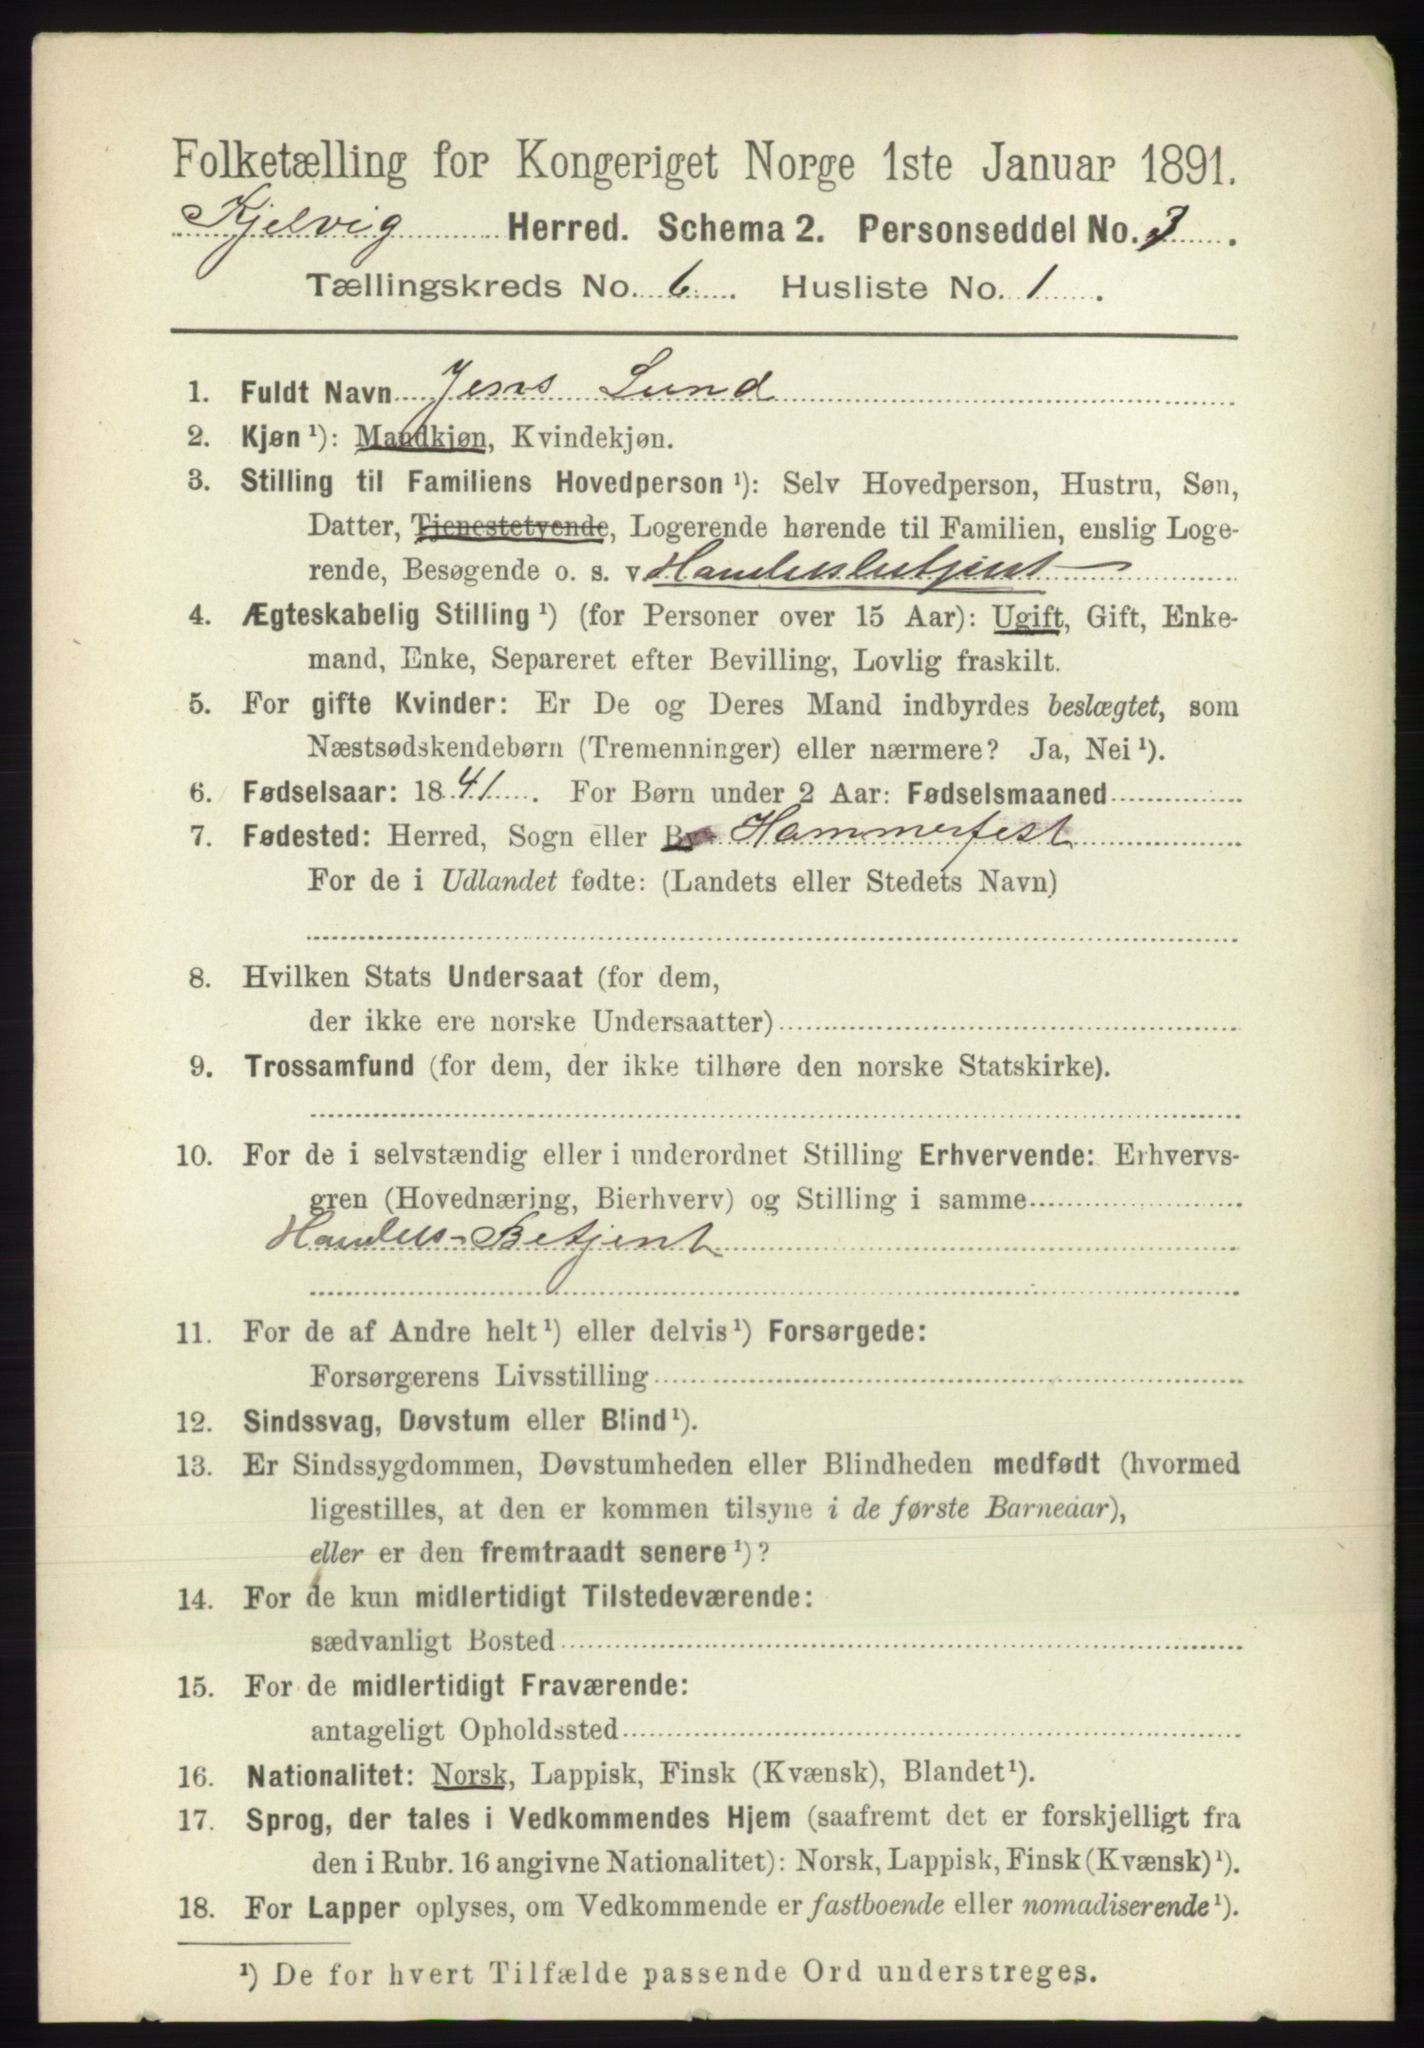 Folketælling for Kongeriget Norge 1ste Januar 1891.
Kjelvig Herred. Schema 2. Personseddel No. 3.
Tællingskreds No. 6. Husliste No. 1.
1. Fuldt Navn Jens Lund
2. Kjøn¹): Mandkjøn, Kvindekjøn.
3. Stilling til Familiens Hovedperson¹): Selv Hovedperson, Hustru, Søn,
Datter, Tjenestetyende, Logerende hørende til Familien, enslig Loge-
rende, Besøgende o. s. v Handelsbetjent
4. Ægteskabelig Stilling¹) (for Personer over 15 Aar): Ugift, Gift, Enke-
mand, Enke, Separeret efter Bevilling, Lovlig fraskilt.
5. For gifte Kvinder: Er De og Deres Mand indbyrdes beslægtet, som
Næstsødskendebørn (Tremenninger) eller nærmere? Ja, Nei¹).
6. Fødselsaar: 1841. For Børn under 2 Aar: Fødselsmaaned
7. Fødested: Herred, Sogn eller By Hammerfest
For de i Udlandet fødte: (Landets eller Stedets Navn)
8. Hvilken Stats Undersaat (for dem,
der ikke ere norske Undersaatter)
9. Trossamfund (for dem, der ikke tilhøre den norske Statskirke).
10. For de i selvstændig eller i underordnet Stilling Erhvervende: Erhvervs-
gren (Hovednæring, Bierhverv) og Stilling i samme
Handels-Betjent
11. For de af Andre helt¹) eller delvis¹) Forsørgede:
Forsørgerens Livsstilling
12. Sindssvag, Døvstum eller Blind¹).
13. Er Sindssygdommen, Døvstumheden eller Blindheden medfødt (hvormed
ligestilles, at den er kommen tilsyne i de første Barneaar),
eller er den fremtraadt senere¹)?
14. For de kun midlertidigt Tilstedeværende:
sædvanligt Bosted
15. For de midlertidigt Fraværende:
antageligt Opholdssted
16. Nationalitet: Norsk, Lappisk, Finsk (Kvænsk), Blandet¹).
17. Sprog, der tales i Vedkommendes Hjem (saafremt det er forskjelligt fra
den i Rubr. 16 angivne Nationalitet): Norsk, Lappisk, Finsk (Kvænsk)¹).
18. For Lapper oplyses, om Vedkommende er fastboende eller nomadiserende¹).
¹) De for hvert Tilfælde passende Ord understreges.